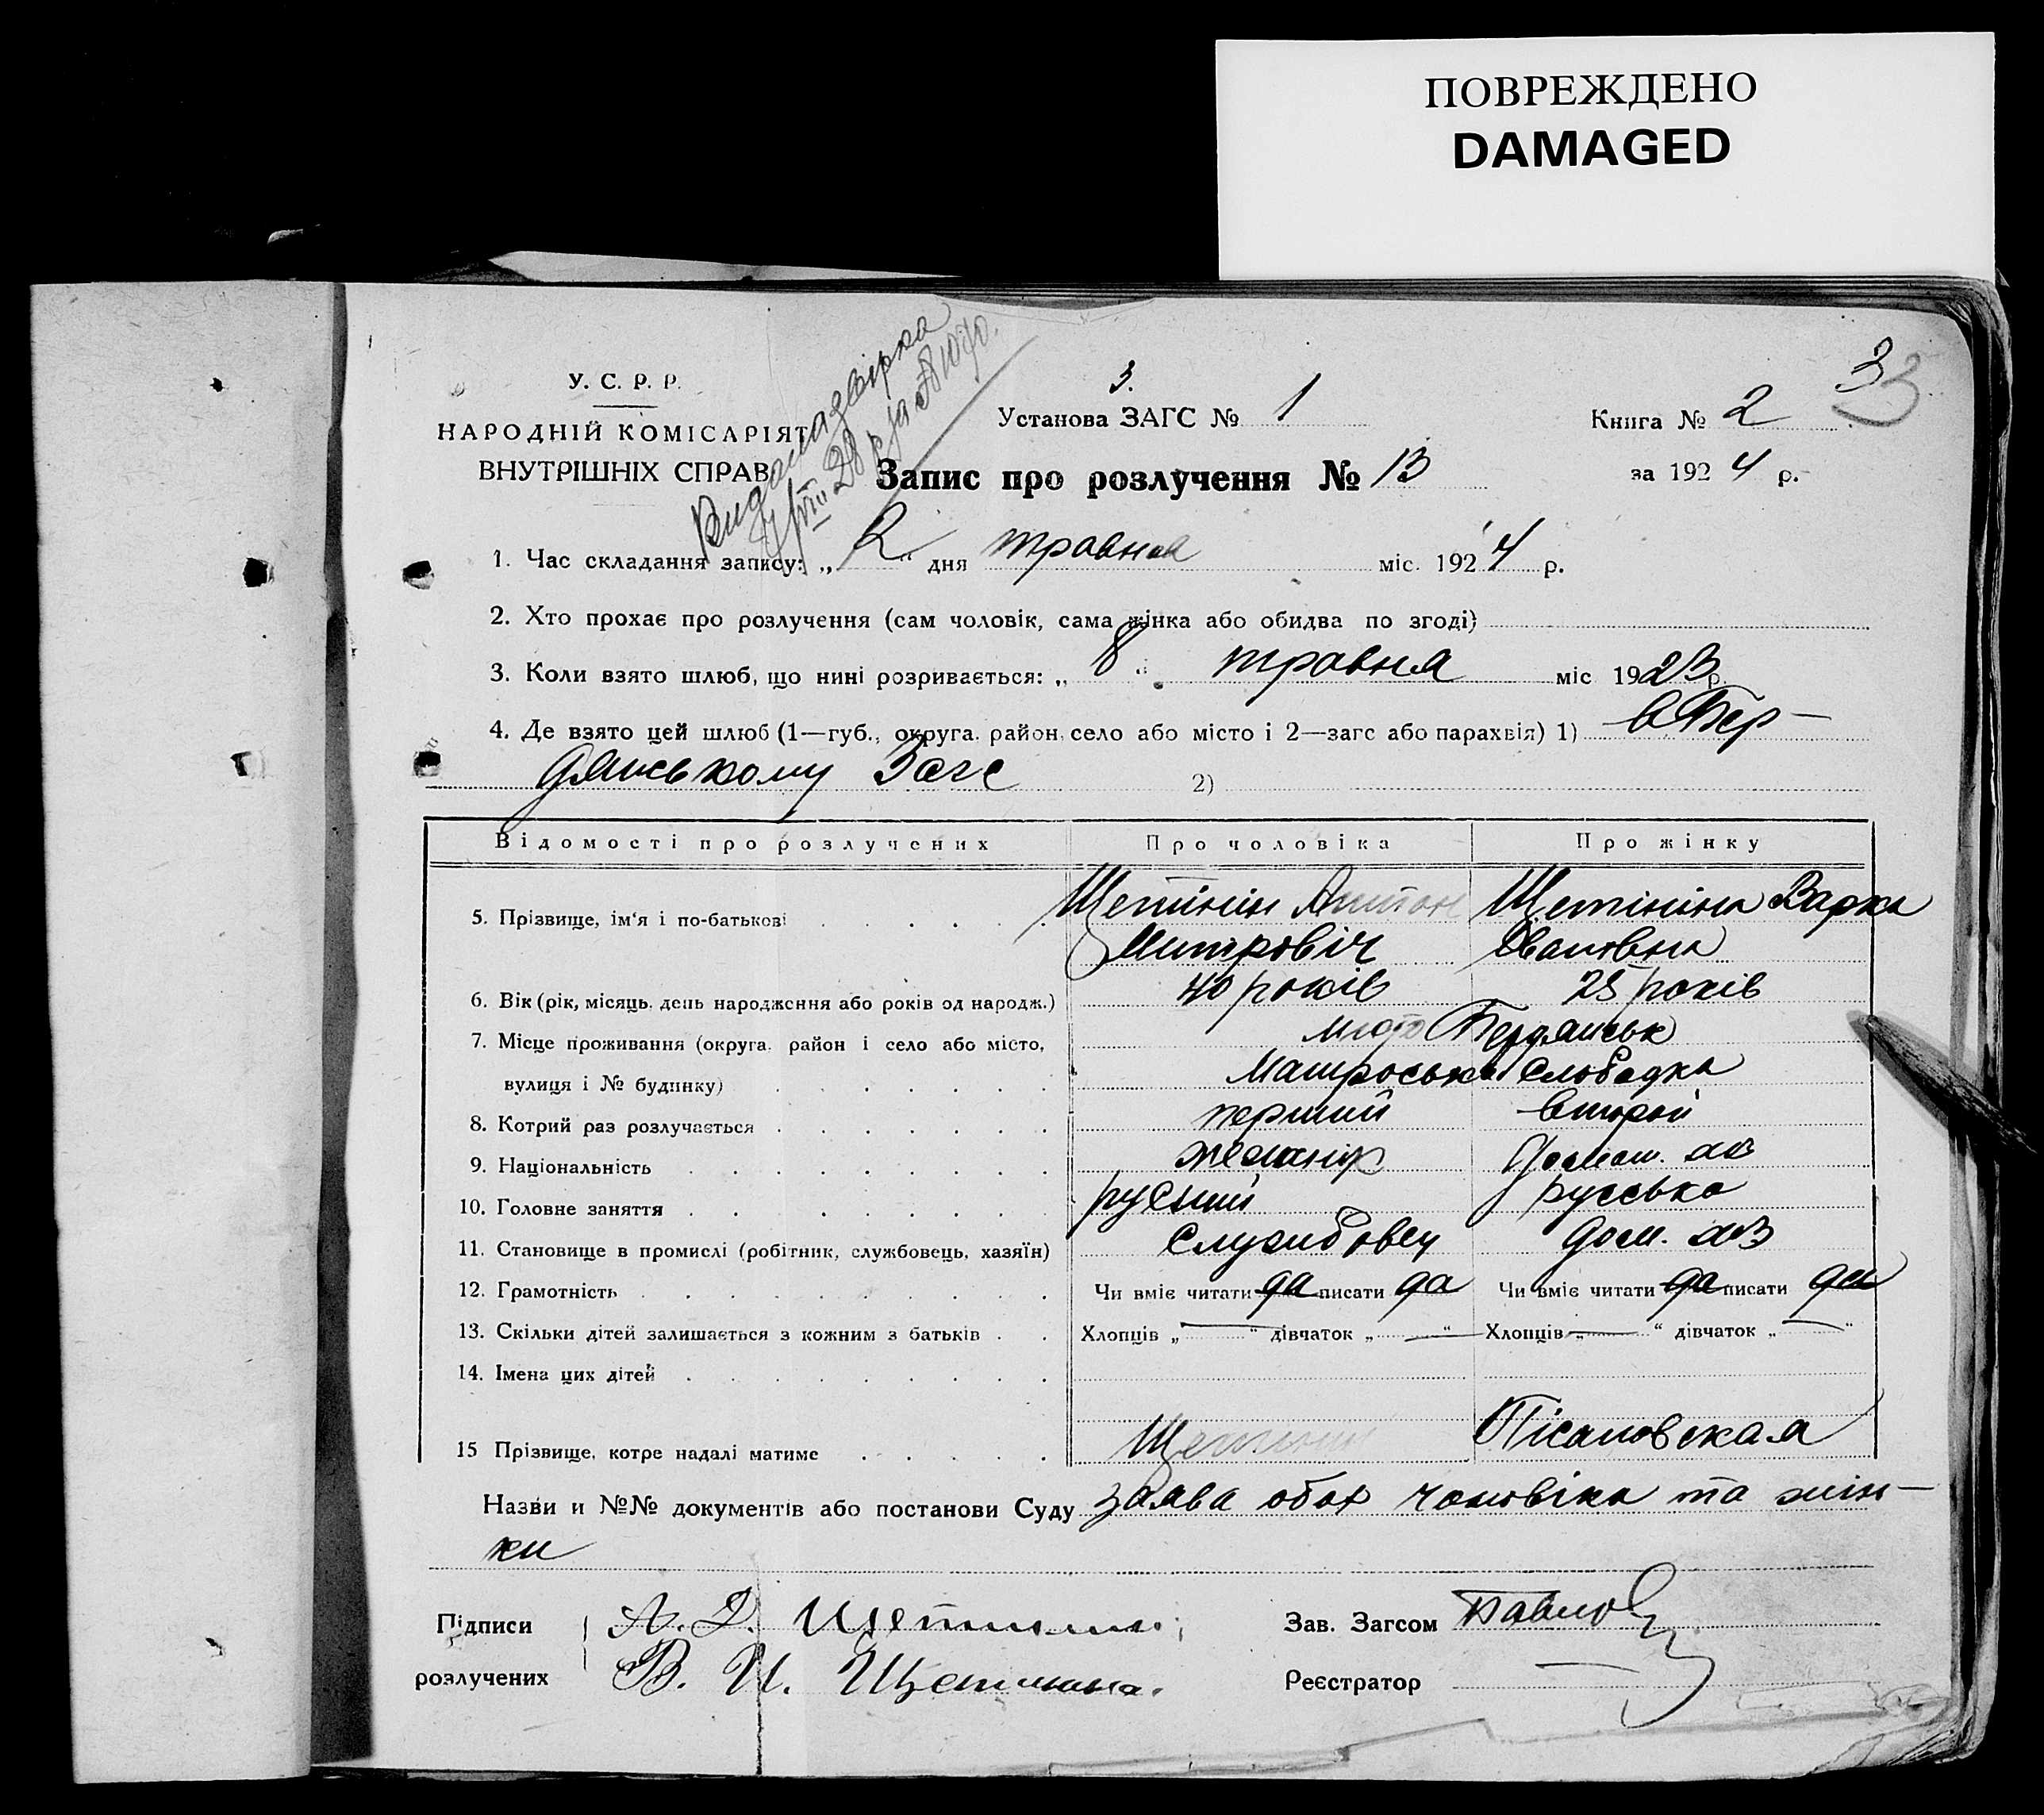 ПОВРЕЖДЕНО
DAMAGED
33
У. С. Р. Р.
НАРОДНІЙ КОМІСАРІЯТ
ВНУТРІШНІХ СПРАВ
3.
Установа ЗАГС № 1
Книга № 2
Запис про розлучення № 13
за 1924 р.
1. Час складання запису: „ 2 “ дня травня міс. 1924 р.
2. Хто прохає про розлучення (сам чоловік, сама жінка або обидва по згоді)
3. Коли взято шлюб, що нині розривається: „ 8 “ травня міс 1923 р.
4. Де взято цей шлюб (1—губ., округа, район, село або місто і 2—загс або парахвія) 1) в Бер-
дянському Загс 2)
Відомості про розлучених Про чоловіка Про жінку
5. Прізвище, ім‘я і по-батькові Щетінін Антон Щетініна Варка
Митровіч Івановна
6. Вік (рік, місяць, день народження або років од народж.) 40 років 25 років
7. Місце проживання (округа, район і село або місто, місто Бердянськ
вулиця і № будинку) Матроська Слободка
8. Котрий раз розлучається перший второй
9. Національність Домаш. хаз
10. Головне заняття руський руська
11. Становище в промислі (робітник, службовець, хазяїн) Службовец Дом. хаз
12. Грамотність Чи вміє читати да писати да Чи вміє читати да писати да
13. Скільки дітей залишається з кожним з батьків Хлопців „ — “ дівчаток „ — “ Хлопців „ — “ дівчаток „ — “
14. Імена цих дітей
15 Прізвище, котре надалі матиме Щетинин Пісановская
Назви и №№ документів або постанови Суду заява обох чоловіка та жін-
ки
Підписи А. Д. Щетинин Зав. Загсом Павлов
розлучених В. И. Щетинина. Реєстратор —